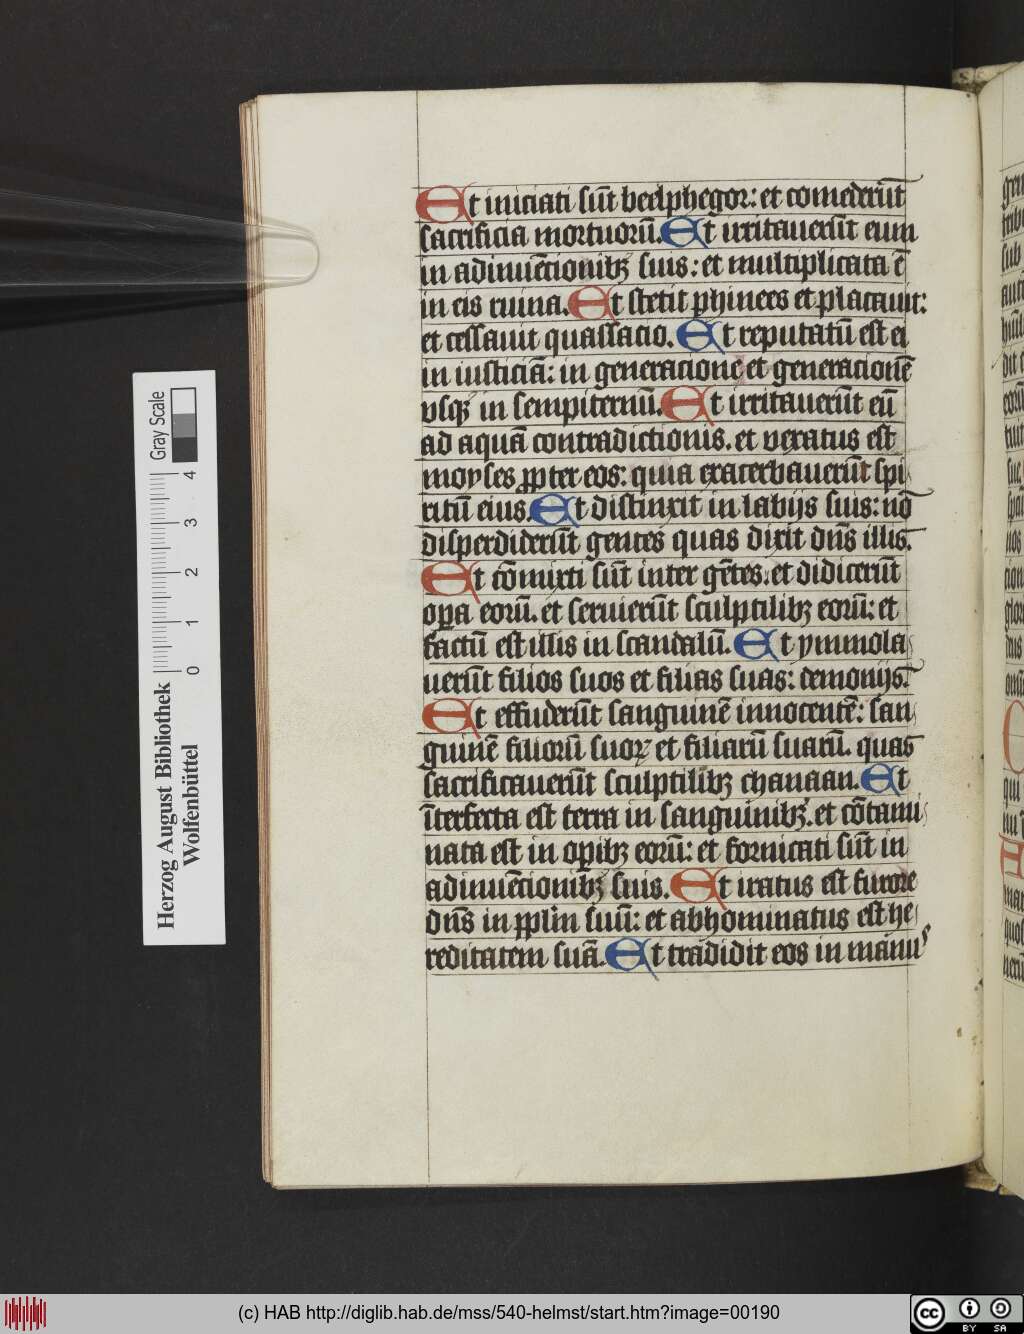 Et iniciati sūt beelphegor: et comederūt
sacrificia mortuorū. Et irritauerūt eum
in adinuēcionibꝫ suis: et multiplicata ē
in eis ruina. Et stetit phinees et placauit:
et cessauit quassacio. Et reputatū est ei
in iusticiā: in generacione et generacionē
vsqꝫ in sempiternū. Et irritauerūt eū
ad aquā contradictionis. et vexatus est
moyses ꝓpter eos: quia exacerbauerūt spi
ritū eius. Et distinxit in labijs suis: nō
disperdiderūt gentes quas dixit dn̄s illis.
Et cōmixti sūt inter gētes. et didicerūt
oꝑa eorū. et seruierūt sculptilibꝫ eorū: et
factū est illis in scandalū. Et ymmola
uerūt filios suos et filias suas: demonijs.
Et effuderūt sanguinē innocentē: san
guinē filiorū suoꝝ et filiarū suarū. quas
sacrificauerūt sculptilibꝫ chanaan. Et
īterfecta est terra in sanguinibꝫ. et cōtami
nata est in oꝑibꝫ eorū: et fornicati sūt in
adinuēcionibꝫ suis. Et iratus est furore
dn̄s in pplm̄ suū: et abhominatus est he
reditatem suā. Et tradidit eos in manus
Herzog August Bibliothek
Wolfenbüttel
0 1 2 3 4
Gray Scale
(c) HAB http://diglib.hab.de/mss/540-helmst/start.htm?image=00190
cc BY SA